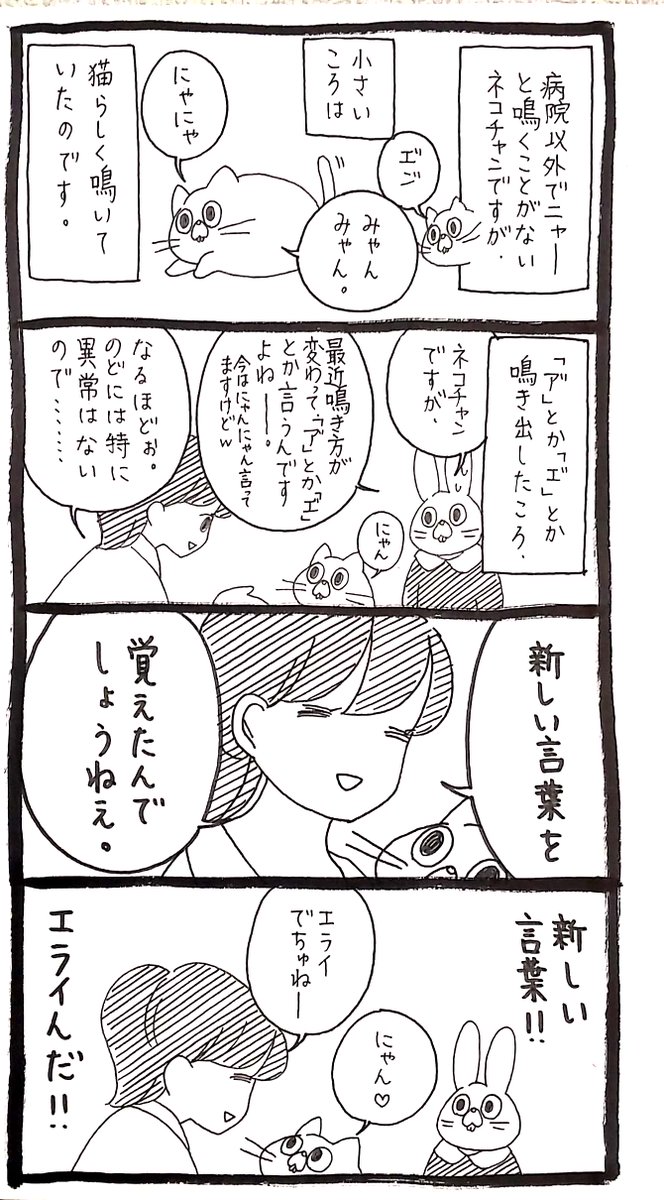 病院以外でニャー
と鳴くことがない
ネコチャンですが、
エ゛ン゛
小さい
ころは
みゃん
みゃん。
にゃにゃ
猫らしく鳴いて
いたのです。
「ア゛」とか「エ゛」とか
鳴き出したころ、
ん
ネコチャン
ですが、
にゃん
最近鳴き方が
変わって、「ア゛」とか「エ゛」
とか言うんです
よねー。
今はにゃんにゃん言って
ますけどw
なるほどぉ。
のどには特に
異常はない
ので……
新しい言葉を
覚えたんで
しょうねぇ。
新しい
言葉!!
にゃん♡
エライ
でちゅねー
エライんだ!!